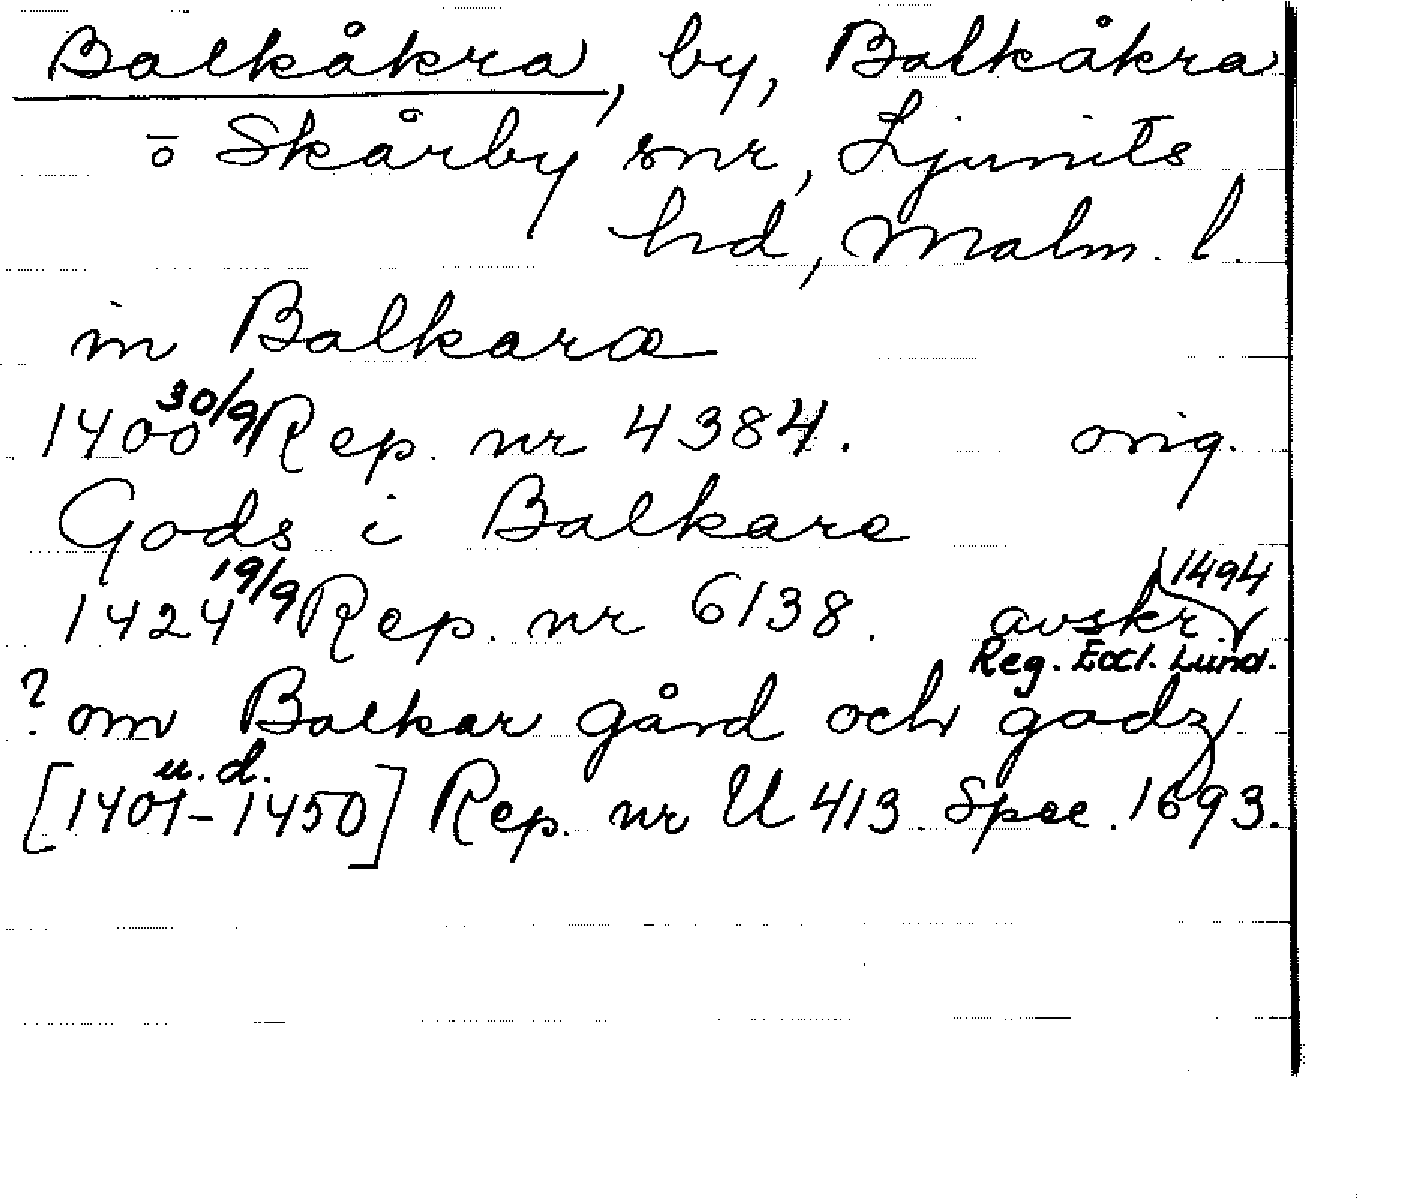 Balkåkra, by, Balkåkra
o Skårby snr, Ljunits
hd, Malm. l.
in Balkaræ
1400 30/9 Rep. nr 4384. orig.
Gods i Balkare
1424 19/9 Rep. nr 6138. avskr. 1494
Reg. Eccl. Lund.
? om Balkar gård och godz
[1401-1450] u.d. Rep. nr U 413. Spec. 1693.